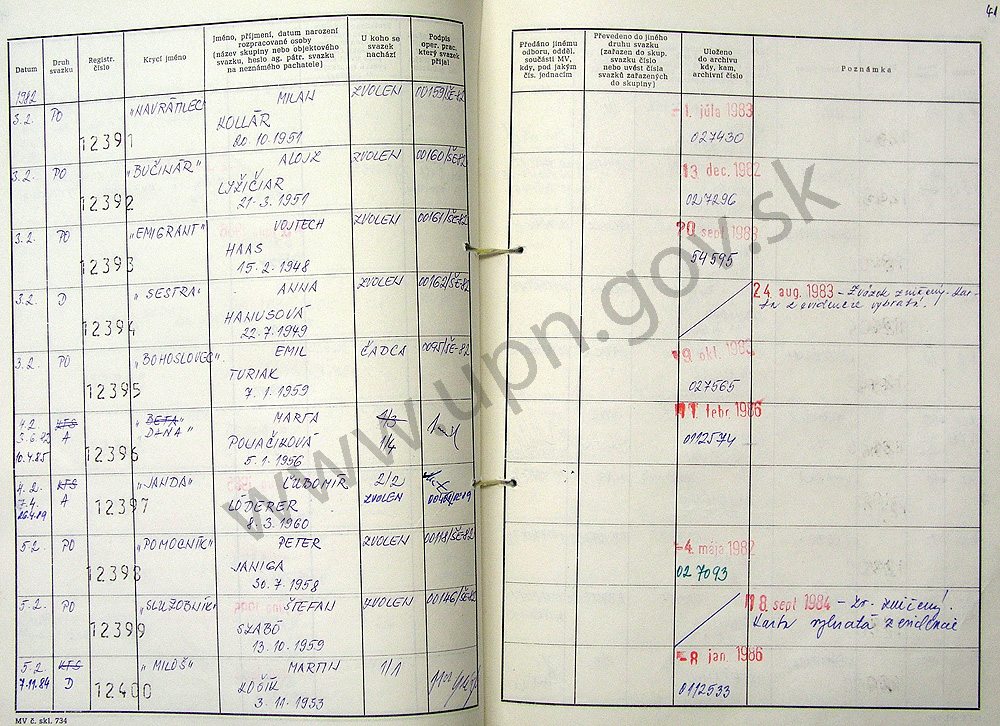 41
Datum
Druh svazku
Registr. číslo
Krycí jméno
Jméno, příjmení, datum narození
rozpracované osoby
(název skupiny nebo objektového
svazku, heslo ag. pátr. svazku
na neznámého pachatele)
U koho se
svazek
nachází
Podpis
oper. prac.
který svazek
přijal
Předáno jinému
odboru, odděl.
součásti MV,
kdy, pod jakým
čís. jednacím
Převedeno do jiného
druhu svazku
(zařazen do skup.
svazku číslo
nebo uvést čísla
svazků zařazených
do skupiny)
Uloženo
do archivu
kdy, kam,
archivní číslo
Poznámka
1982
3.2. PO 12391 "NAVRÁTILEC" MILAN ZVOLEN 00159/ŠE-82 1. júla 1983
KOLLÁR 027430
20.10.1951
3.2. PO 12392 "BUČINÁR" ALOJZ ZVOLEN 00160/ŠE-82 13 dec. 1982
LYŽIČIAR 027296
21.3.1951
3.2. PO 12393 "EMIGRANT" VOJTECH ZVOLEN 00161/ŠE-82 20 sept. 1988
HAAS 54595
15.2.1948
3.2. D 12394 "SESTRA" ANNA ZVOLEN 00162/ŠE-82 24 aug. 1983 - Zväzok zničený. Kar-
HANUSOVÁ ta z evidencie vybratá.
22.7.1949
3.2. PO 12395 "BOHOSLOVEC" EMIL ČADCA 0095/ŠE-82
TURIAK 027565
7.1.1959
4.2. KTS 12396 "BETA" MARTA 1/3 11 febr. 1986
A "DANA" POLIAČIKOVÁ 1/4 0112574
10.4.85 5.1.1956
4.2. KTS 12397 "JANDA" ĽUBOMÍR 2/2
7.4. A LÓDERER ZVOLEN
8.3.1960
5.2. PO 12398 "POMOCNÍK" PETER ZVOLEN 00118/ŠE-82 -4. mája 1982
JANIGA 027093
30.7.1958
5.2. PO 12399 "SLUŽOBNÍK" ŠTEFAN ZVOLEN 00146/ŠE-82 18 sept 1984 - Zv. zničený.
SZABÓ Karta vybratá z evidencie
13.10.1959
5.2. KTS 12400 "MILOŠ" MARTIN 1/1 -8 jan. 1986
7.11.84 D KOŠÍK 0112533
3.11.1953
MV č. skl. 734
www.upn.gov.sk